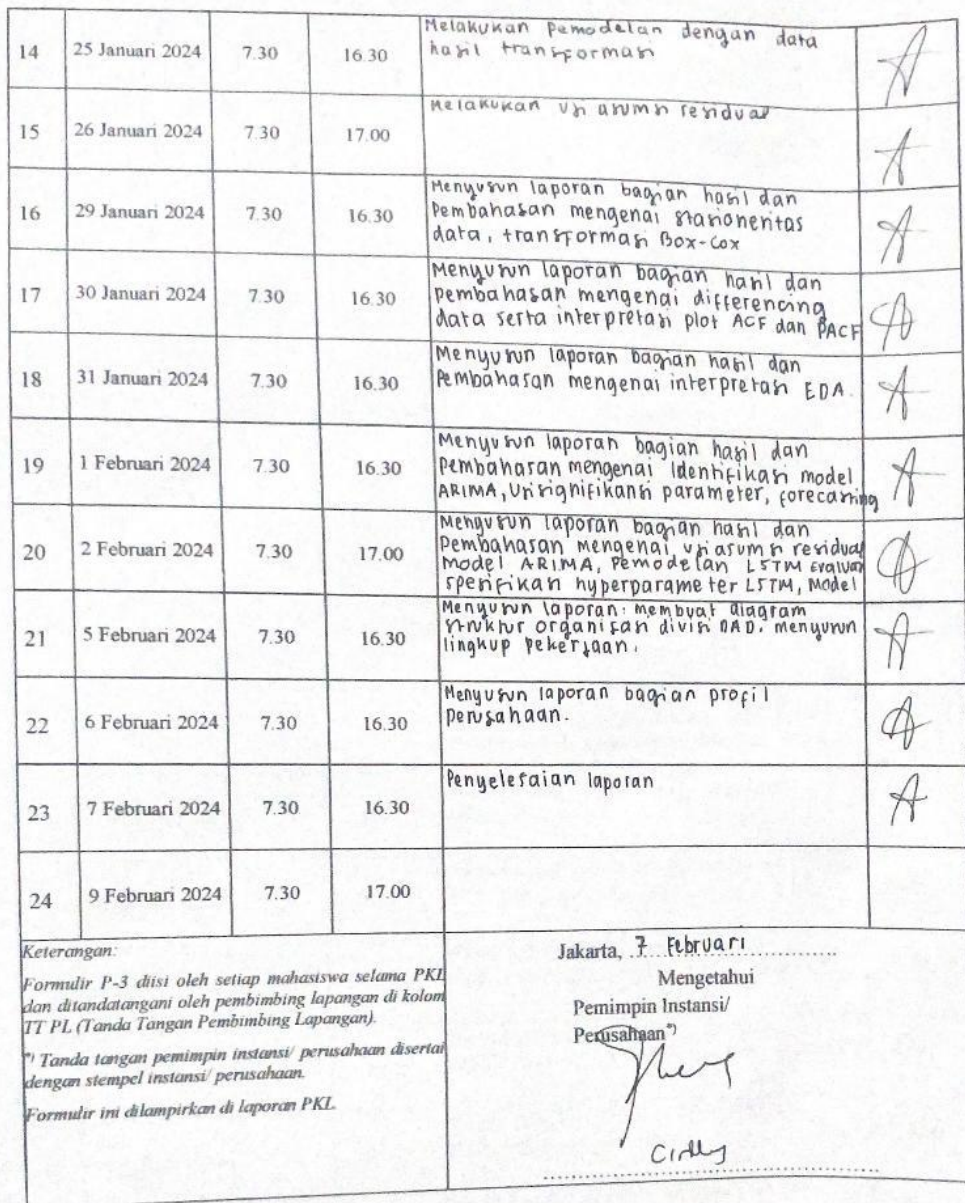 14 25 Januari 2024 7.30 16.30 Melakukan pemodelan dengan data
hasil transformasi
15 26 Januari 2024 7.30 17.00 Melakukan uji asumsi residual
16 29 Januari 2024 7.30 16.30 Menyusun laporan bagian hasil dan
Pembahasan mengenai stasioneritas
data, transformasi Box-Cox
17 30 Januari 2024 7.30 16.30 Menyusun laporan bagian hasil dan
pembahasan mengenai differencing
data serta interpretasi plot ACF dan PACF
18 31 Januari 2024 7.30 16.30 Menyusun laporan bagian hasil dan
Pembahasan mengenai interpretasi EDA.
19 1 Februari 2024 7.30 16.30 Menyusun laporan bagian hasil dan
pembahasan mengenai Identifikasi model
ARIMA, Uji signifikansi parameter, forecasting
20 2 Februari 2024 7.30 17.00 Menyusun laporan bagian hasil dan
Pembahasan mengenai uji asumsi residual
model ARIMA, Pemodelan LSTM Evaluasi
spesifikasi hyperparameter LSTM, Model
21 5 Februari 2024 7.30 16.30 Menyusun laporan: membuat diagram
struktur organisasi divisi DAD, menyusun
lingkup pekerjaan.
22 6 Februari 2024 7.30 16.30 Menyusun laporan bagian profil
perusahaan.
23 7 Februari 2024 7.30 16.30 Penyelesaian laporan
24 9 Februari 2024 7.30 17.00
Keterangan:
Formulir P-3 diisi oleh setiap mahasiswa selama PKL
dan ditandatangani oleh pembimbing lapangan di kolom
TT PL (Tanda Tangan Pembimbing Lapangan).
*) Tanda tangan pemimpin instansi/ perusahaan disertai
dengan stempel instansi/ perusahaan.
Formulir ini dilampirkan di laporan PKL
Jakarta, 7 Februari
Mengetahui
Pemimpin Instansi/
Perusahaan*)